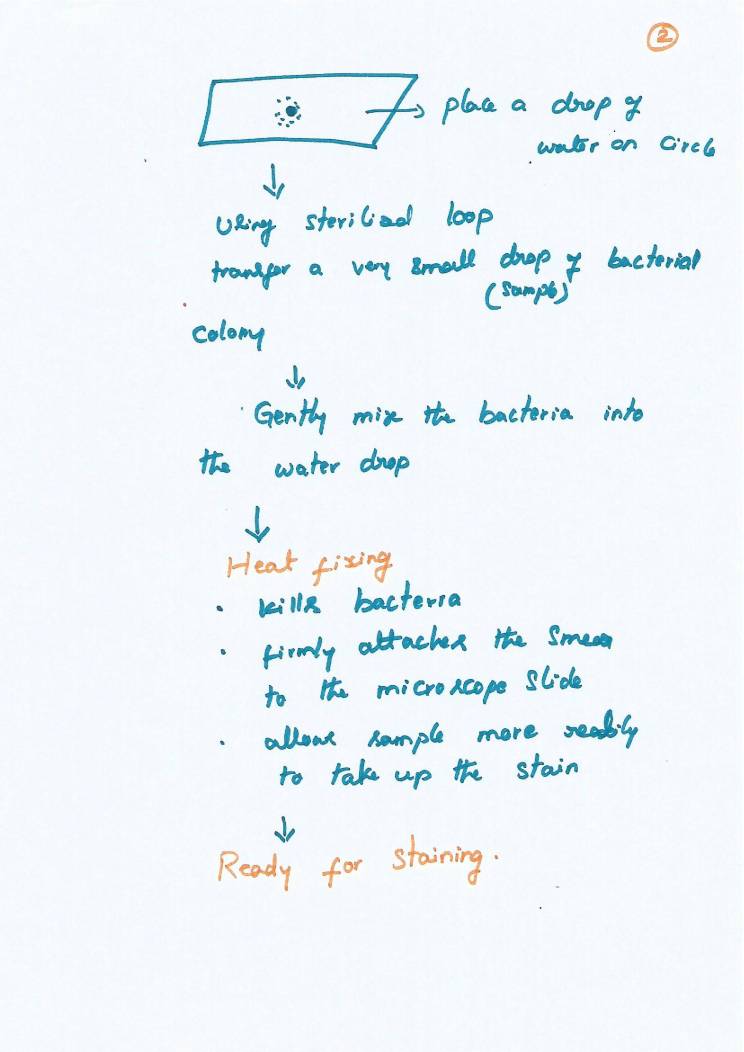 2
place a drop of
water on circle
Using sterilized loop
transfer a very small drop of bacterial
(sample)
colony
Gently mix the bacteria into
the water drop
Heat fixing
• kills bacteria
• firmly attaches the smear
to the microscope slide
• allows sample more readily
to take up the stain
Ready for staining.